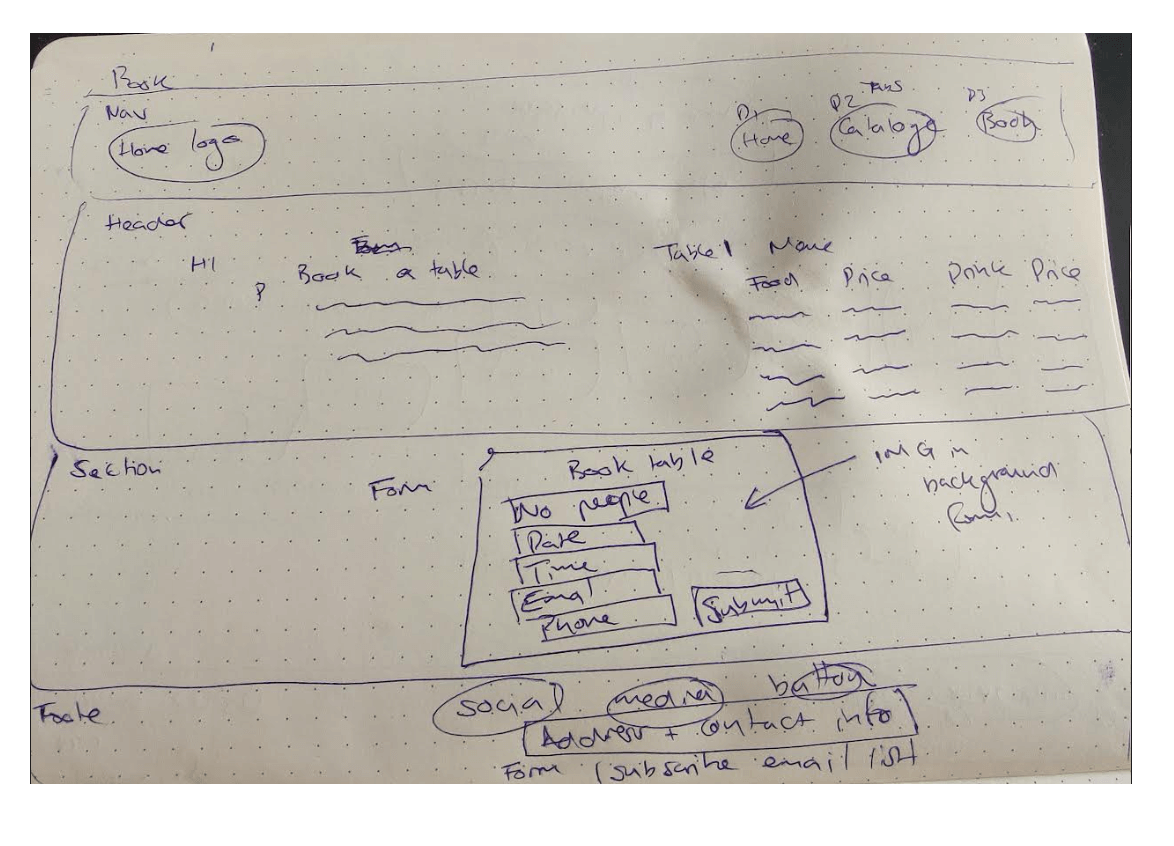 Book
Nav
Home logo
P1 Home
P2 Tabs Cataloge
P3 Book
Header
H1 Book a table
P
Table 1
Food Price Drink Price
Section
Form
Book table
No people
Date
Time
Email
Phone
Submit
IMG in
background
form.
Foote
social media button
Address + contact info
Form (subscribe email list